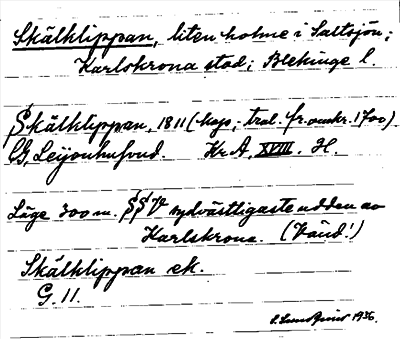 Skälklippan, liten holme i Saltsjön;
Karlskrona stad; Blekinge l.
Skälklippan, 1811 (kop., trol. fr. omkr. 1700).
G. Leijonhufvud. Kr. A. XVIII. H.
Läge 300 m. SSV sydvästligaste udden av
Karlskrona. (Vänd!)
Skälklippan ek.
G. 11.
1936.